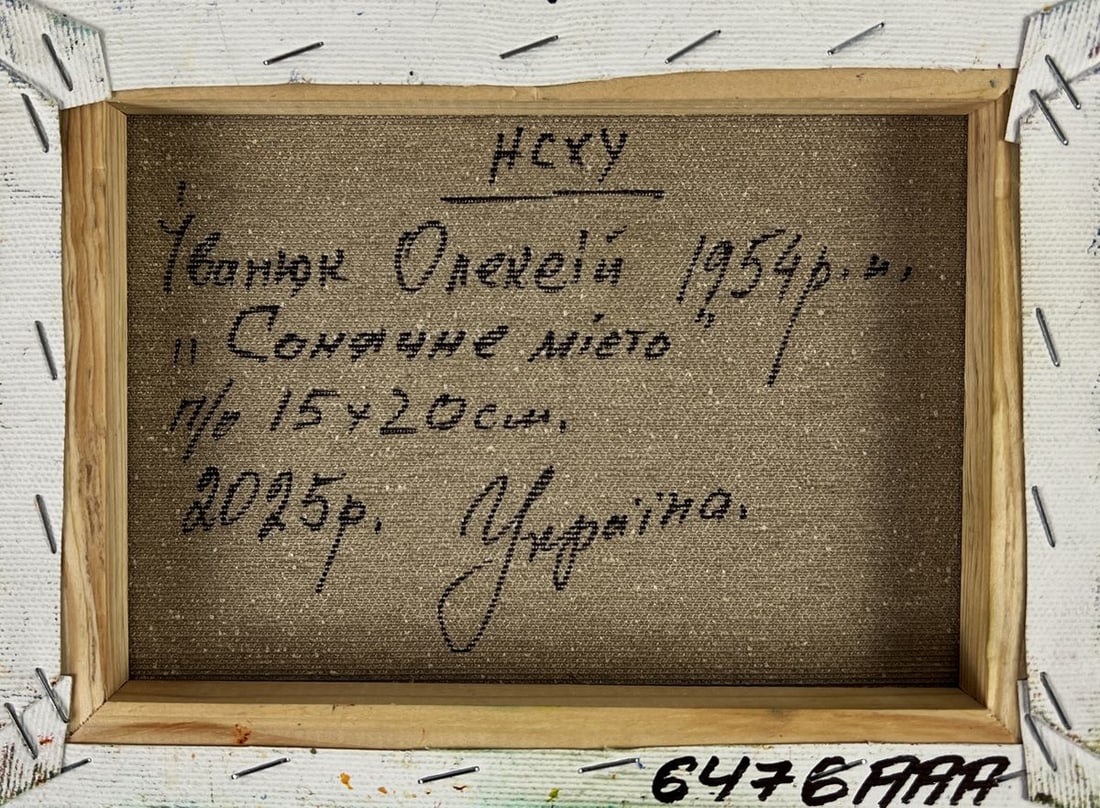 НСХУ
Іванюк Олексій 1954р.н.
„Сонячне місто"
п/о 15х20см.
2025р. Україна.
6476AAA